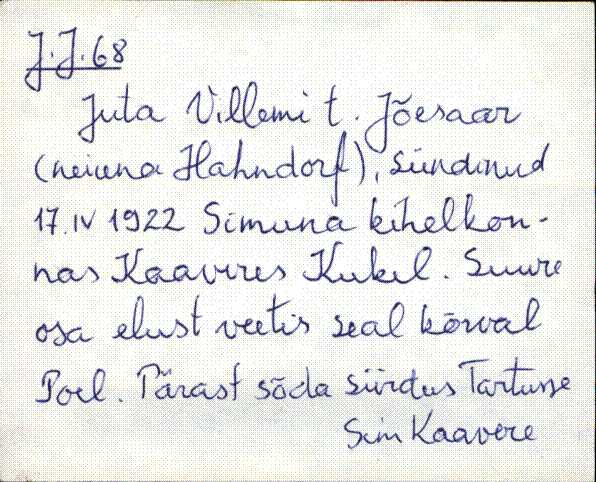 J.J.68
Juta Villemi t. Jõesaar
(neiuna Hahndorf), sündinud
17.IV 1922 Simuna kihelkon-
nas Kaaveres Kukel. Suure
osa elust veetis seal kõrval
Poel. Pärast sõda siirdus Tartusse
Sim Kaavere